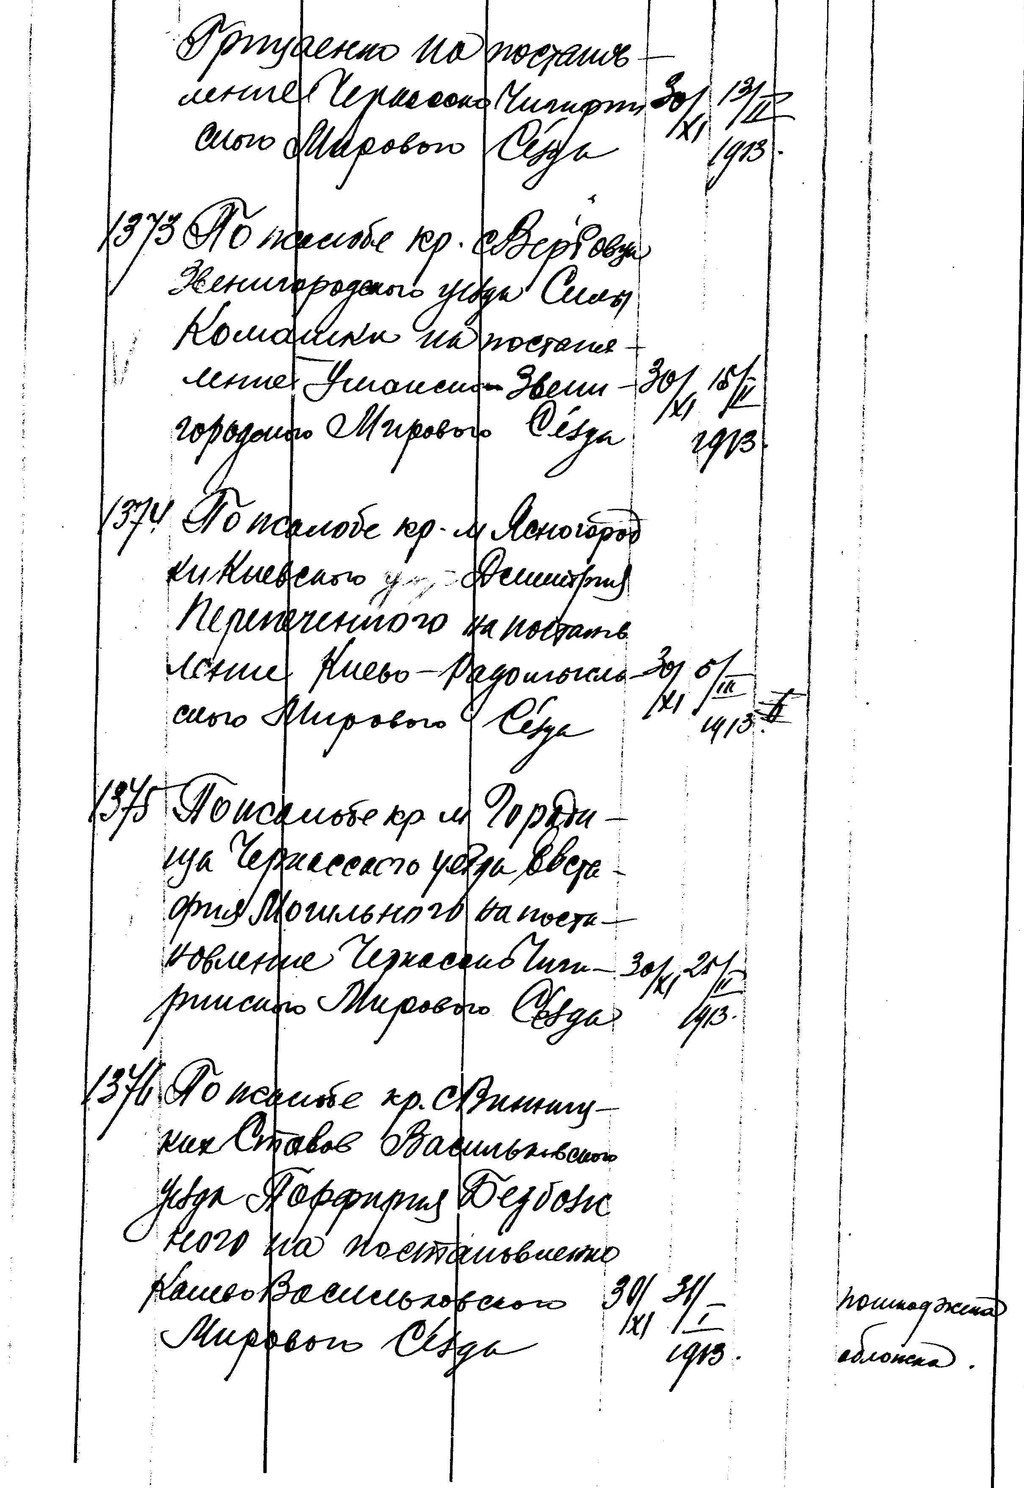 Грищенко на постанов-
ление Черкасско Чигирин
ского Мирового Сьезда
30/XI 13/II 1913.
1373 По жалобе кр. с Вербовца
Звенигородского уезда Силы
Комашки на постанов-
ление Уманско Звени-
городского Мирового Сьезда
30/XI 15/II 1913.
1374 По жалобе кр. м Ясногород
ки Киевского Дмитрия
Перепеченного на постанов
ление Киево-Радомысль-
ского Мирового Сьезда
30/XI 5/III 1913.
1375 По жалобе кр м Городи-
ща Черкасского уезда Евста-
фия Могильного на поста-
новление Черкасско Чиги-
ринского Мирового Сьезда
30/XI 25/II 1913.
1376 По жалобе кр. с Винниц-
ких Ставов Васильковского
уезда Порфирия Безбож
ного на постановление
Киево Васильковского
Мирового Сьезда
30/XI 31/I 1913.
пошкоджена
обложка.